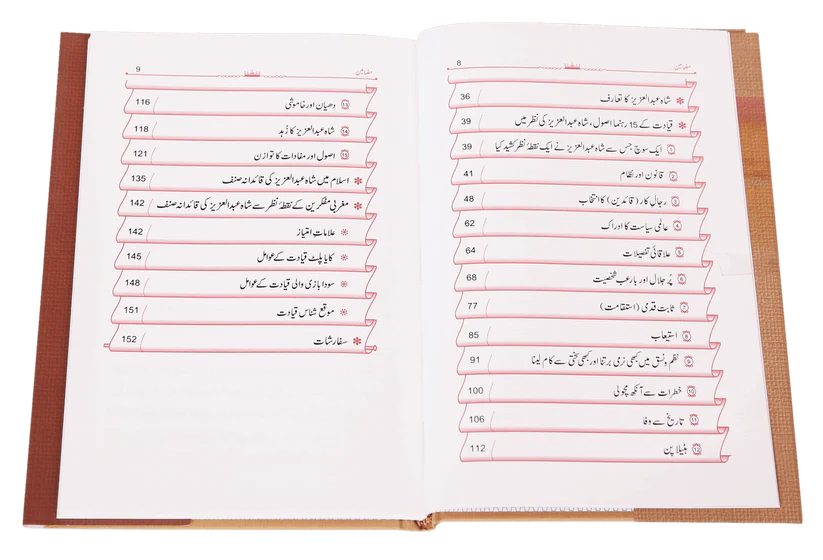 مضامین 8
شاہ عبدالعزیز کا تعارف 36
قیادت کے 15 رہنما اصول، شاہ عبدالعزیز کی نظر میں 39
1 ایک سوچ جس سے شاہ عبدالعزیز نے ایک نقطۂ نظر کشید کیا 39
2 قانون اور نظام 41
3 رجالِ کار (قائدین) کا انتخاب 48
4 عالمی سیاست کا ادراک 62
5 علاقائی تفصیلات 64
6 پُر جلال اور بارعب شخصیت 68
7 ثابت قدمی (استقامت) 77
8 استیعاب 85
9 نظم ونسق میں کبھی نرمی برتنا اور کبھی سختی سے کام لینا 91
10 خطرات سے آنکھ مچولی 100
11 تاریخ سے وفا 106
12 ہٹیلا پن 112
مضامین 9
13 دھیان اور خاموشی 116
14 شاہ عبدالعزیز کا زُہد 118
15 اصول اور مفادات کا توازن 121
اسلام میں شاہ عبدالعزیز کی قائدانہ صنف 135
مغربی مفکرین کے نقطۂ نظر سے شاہ عبدالعزیز کی قائدانہ صنف 142
علاماتِ امتیاز 142
کایا پلٹ قیادت کے عوامل 145
سودا بازی والی قیادت کے عوامل 148
موقع شناس قیادت 151
سفارشات 152